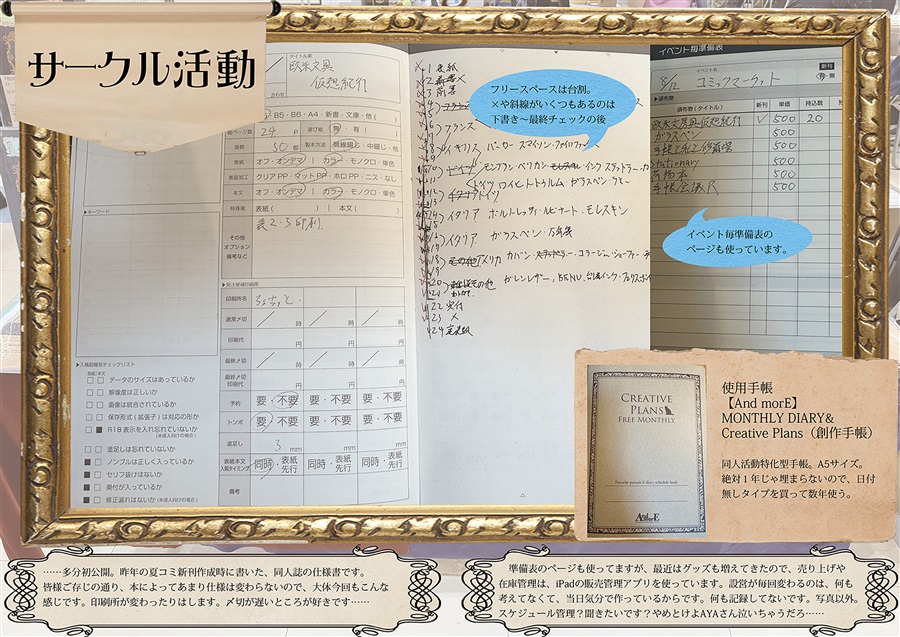 サークル活動
タイトル名
欧米文具
仮想紀行
B5・B6・A4・新書・文庫・他（ ）
総ページ数 24 P 遊び紙 無・有（ ）
部数 50 部 製本方法 無線綴じ・中綴じ・他
表紙 オフ・オンデマ カラー・モノクロ・単色
表面加工 クリアPP・マットPP・ホロPP・ニス・なし
本文 オフ・オンデマ カラー・モノクロ・単色
特殊紙 表紙（ ） 本文（ ）
その他
オプション
備考など
表2・3印刷
▶キーワード
▶発注候補印刷所
印刷所名 ちょ古っ都
通常〆切 ／ 時 ／ 時 ／ 時
印刷代 円 円 円
最終〆切 ／ 時 ／ 時 ／ 時
最終〆切
印刷代 円 円 円
予約 要・不要 要・不要 要・不要
トンボ 要・不要 要・不要 要・不要
塗足し 3 mm mm mm
表紙本文
入稿タイミング 同時・表紙先行 同時・表紙先行 同時・表紙先行
備考
▶入稿前簡易チェックリスト
表紙 本文
データのサイズはあっているか
解像度は正しいか
画像は統合されているか
保存形式（拡張子）は対応の形か
R18表示を入れ忘れていないか
（未成人向けの場合）
塗足しは忘れていないか
ノンブルは正しく入っているか
セリフ抜けはないか
奥付が入っているか
修正漏れはないか（成人向けの場合）
1 表紙
2
3 前書
フランス
イギリス パーカー スマイソン・ファイロファックス
モンブラン ペリカン インク ステッドラー
ドイツ ロイヒトトゥルム ガラスペン・ラミー
イタリア ボルトレッティ・ルビナート・モレスキン
イタリア ガラスペン・万年筆
その他アメリカ カバン・
その他
22 奥付
23 メ
24 裏表紙
フリースペースは台割。
×や斜線がいくつもあるのは
下書き～最終チェックの後
イベント毎準備表
イベント名 新刊
8/12 コミックマーケット 有・無
▶頒布物
頒布物（タイトル） 新刊 単価 持込数
欧米文房具仮想紀行 ✓ 500 20
ガラスペン 500
500
Stationary 500
荷物本 500
手帳会議R 500
イベント毎準備表の
ページも使っています。
CREATIVE
PLANS
FREE MONTHLY
Favorite pursuit & diary schedule book
And morE
使用手帳
【And morE】
MONTHLY DIARY&
Creative Plans（創作手帳）
同人活動特化型手帳。A5サイズ。
絶対1年じゃ埋まらないので、日付
無しタイプを買って数年使う。
……多分初公開。昨年の夏コミ新刊作成時に書いた、同人誌の仕様書です。
皆様ご存じの通り、本によってあまり仕様は変わらないので、大体今回もこんな
感じです。印刷所が変わったりはします。〆切が遅いところが好きです……
準備表のページも使ってますが、最近はグッズも増えてきたので、売り上げや
在庫管理は、iPadの販売管理アプリを使っています。設営が毎回変わるのは、何も
考えてなくて、当日気分で作っているからです。何も記録してないです。写真以外。
スケジュール管理？聞きたいです？やめとけAYAさん泣いちゃうだろ……